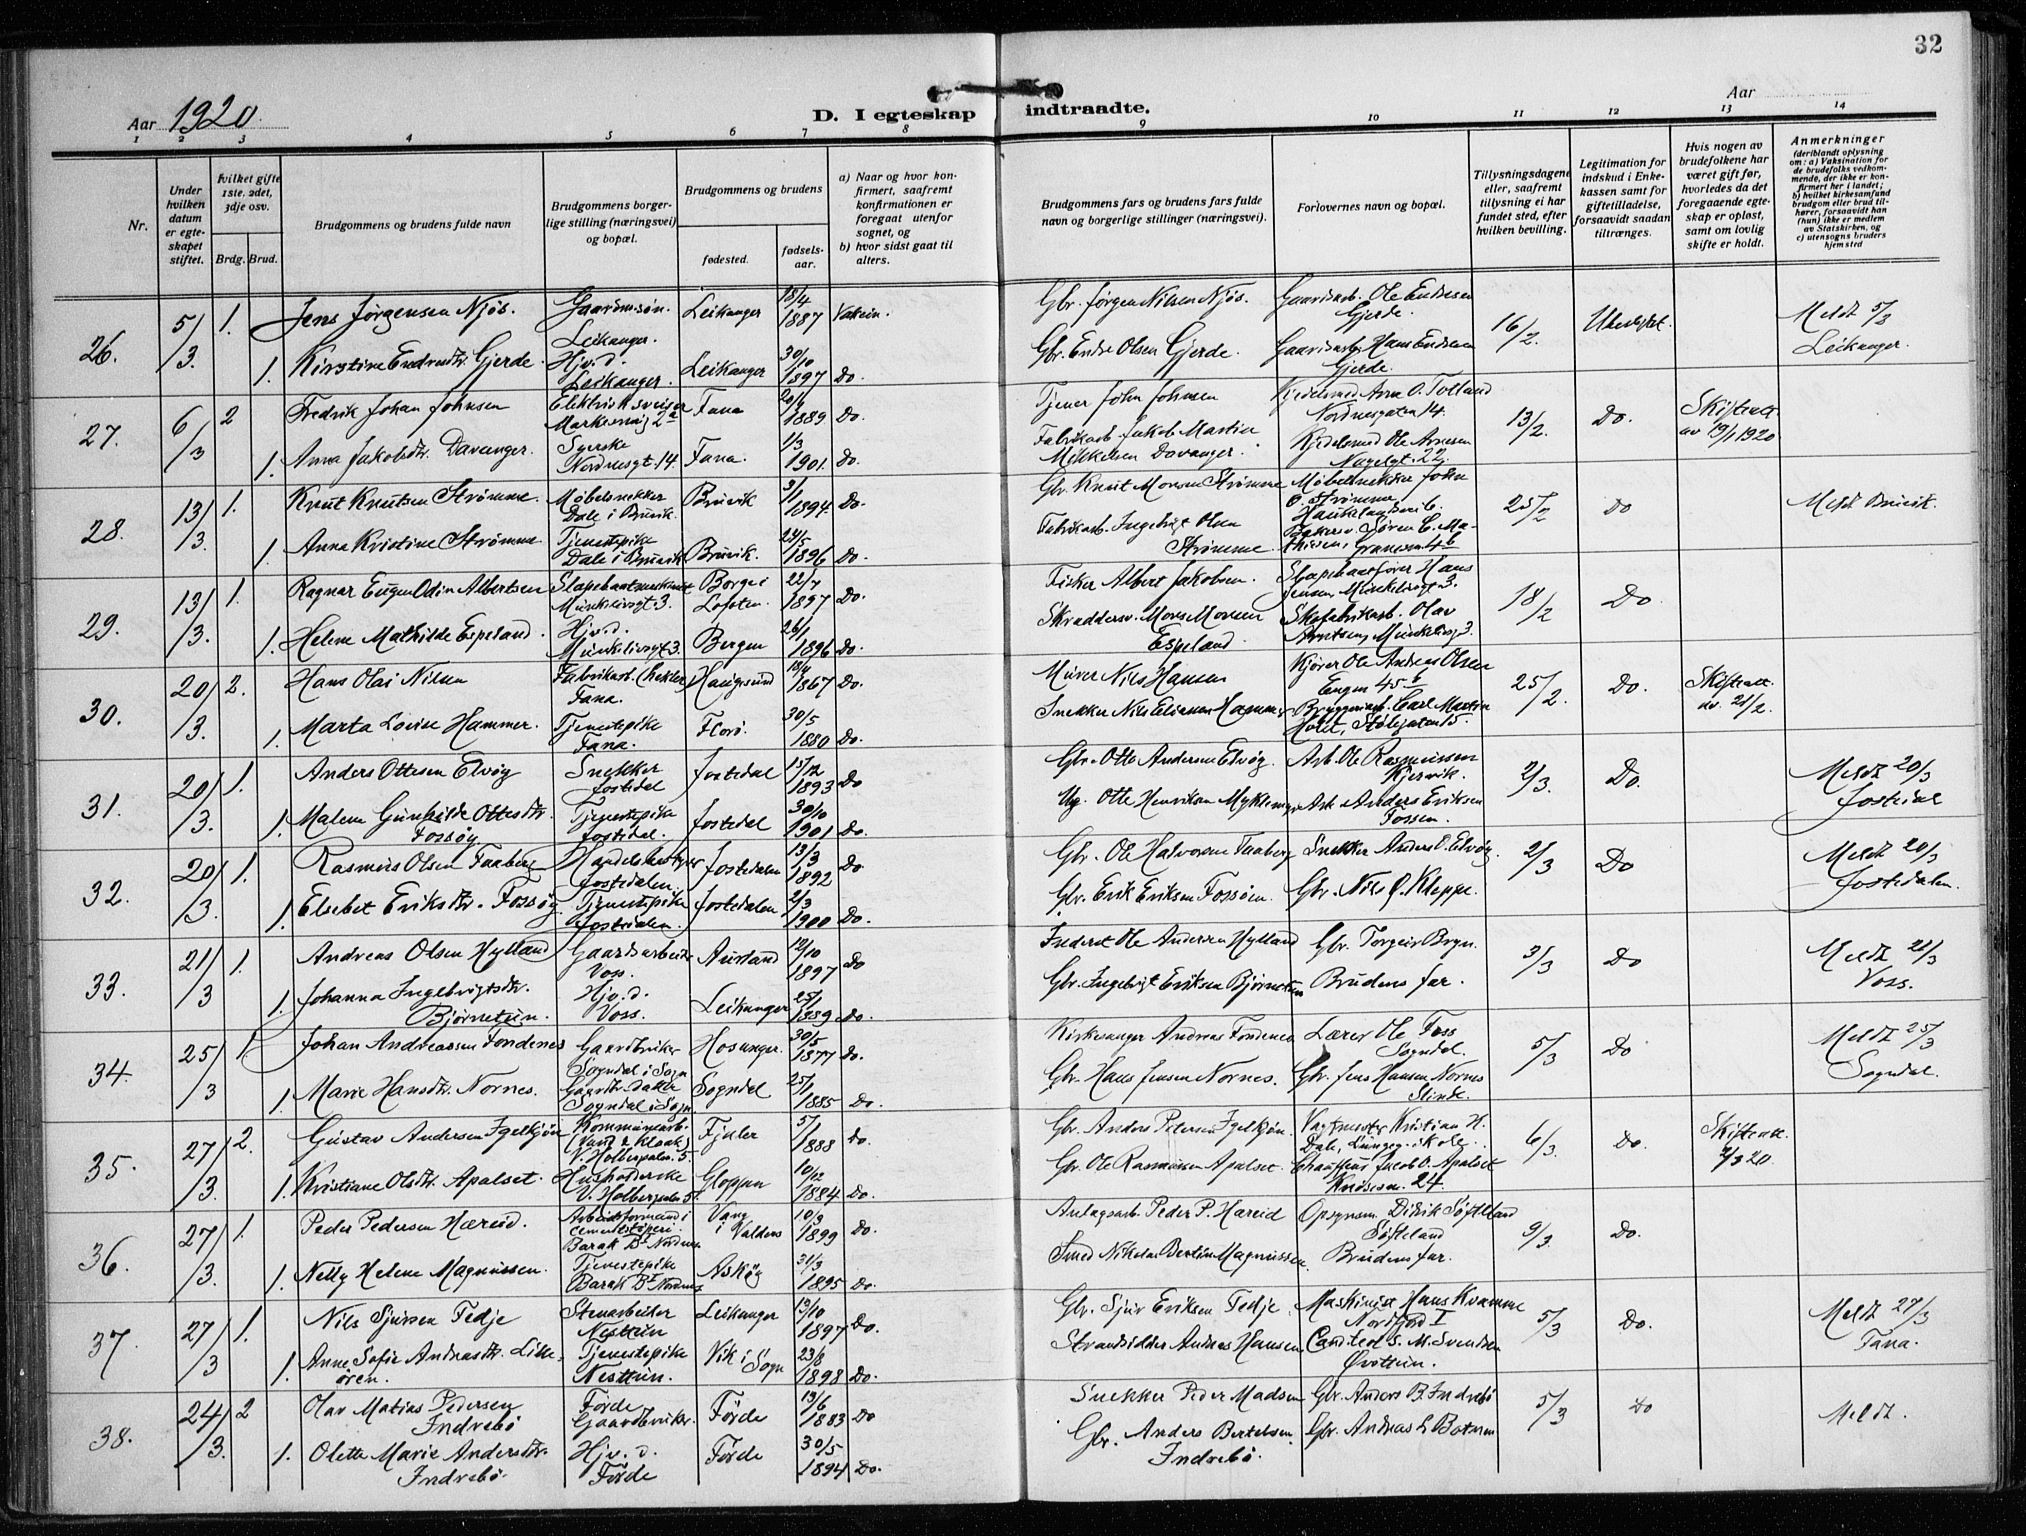 32
Aar 1920.
D. I egteskap indtraadte.
Aar
1 2 3 4 5 6 7 8 9 10 11 12 13 14
Nr.
Under hvilken datum er egteskapet stiftet.
Hvilket gifte 1ste, 2det, 3dje osv.
Brdg. Brud.
Brudgommens og brudens fulde navn
Brudgommens borgerlige stilling (næringsvei) og bopæl.
Brudgommens og brudens
fødested.
fødselsaar.
a) Naar og hvor konfirmert, saafremt konfirmationen er foregaat utenfor sognet, og
b) hvor sidst gaat til alters.
Brudgommens fars og brudens fars fulde navn og borgerlige stillinger (næringsvei).
Forlovernes navn og bopæl.
Tillysningsdagene eller, saafremt tillysning ei har fundet sted, efter hvilken bevilling.
Legitimation for indskud i Enkekassen samt for giftetilladelse, forsaavidt saadan tiltrænges.
Hvis nogen av brudefolkene har været gift før, hvorledes da det foregaaende egteskap er opløst, samt om lovlig skifte er holdt.
Anmerkninger
(deriblandt oplysning om: a) Vaksination for de brudefolks vedkommende, der ikke er konfirmert her i landet; b) hvilket kirkesamfund brudgom eller brud tilhører, forsaavidt han (hun) ikke er medlem av Statskirken, og c) utensogns bruders hjemsted
26. 5/3. 1. Jens Jørgensen Njøs. Gaardmsøn. Leikanger. Leikanger 18/4 1887 Gbr. Jørgen Nilsen Njøs. Gaardsarb. Ole Endresen Gjerde. 16/2. Meldt 5/3 Leikanger.
1. Kirstine Endresdtr. Gjerde. Hjv. d. Leikanger. Leikanger 30/10 1897 Do. Gbr. Endre Olsen Gjerde. Gaardsarb. Hans Endresen Gjerde.
27. 6/3 2 Fredrik Johan Johnsen Elektrisksveiser Markevei 2a Fana 1889 Do. Tjener John Johnsen Kjedelsmed Arne O. Totland Nordnesgaten 14. 13/2. Do. Skifteatt. av 19/1 1920
1. Anna Jakobsdtr. Davanger. Syerske Nordnesgt. 14. Fana. 1/3 1901. Do. Fabrikarb. Jakob Martin Mykkelsen Davanger. Kjedelsmed Ole Arnesen Nagelgt. 22.
28. 13/3. 1. Knut Knutsen Strømme. Møbelsnekker Dale i Bruvik. Bruvik 3/1 1894 Do. Gbr. Knut Monsen Strømme Møbelsnekker John O. Strømme, 25/2 Do Meldt Bruvik.
1. Anna Kristine Strømme. Tjenestepike Dale i Bruvik Bruvik. 24/5 1896 Do. Fabrikarb. Ingebrigt Olsen Strømme. Bakersv. Søren C. Mathisen,
29. 13/3. 1. Ragnar Eugen Odin Albertsen Münklivsgt. 3. Borge i Lofoten. 22/7 1897 Do. Fisker Albert Jakobsen. Slæpebaatfører Hans Jensen, Münklivsgt. 3. 18/2 Do
1. Helene Mathilde Espeland. Hjv. d. Münklivsgt. 3. Bergen 26/1 1896 Do. Skræddersv. Mons Monsen Espeland Skofabrikarb. Olav Arntsen, Münklivsg. 3.
30. 20/3. 2. Hans Olai Nilsen Fabrikarb. (hekler) Fana. Haugesund 1867 Do. Murer Nils Hansen Kjører Ole Andreas Olsen Engen 45 b 25/2. Do. Skifteatt. av. 21/2.
1. Marta Lovise Hammer. Tjenestepike Fana. Florö. 30/5 1880 Do. Snekker Nils Eliasen Hammer Bryggeriarb. Carl Martin Holst, Stølegaten 15.
31. 20/3. 1. Anders Ottesen Elvøy Snekker Jostedal Jostedal 15/12 1893 Do Gbr. Otto Andersen Elvøy. Arb. Ole Rasmussen Kjervik. 2/3. Do. Meldt 20/3 Jostedal
1. Malene Gunhilde Ottesdtr. Fossøy Tjenestepike Jostedal. Jostedal 30/10 1901 Do. Ug. Otto Henriksen Myklemyr Arb. Anders Eriksen Fossen.
32. 20/3. 1. Rasmus Olsen Faaberg Handelsbestyrer Jostedalen. Jostedalen 13/3 1892 Do Gbr. Ole Halvorsen Faaberg Snekker Anders O. Elvøy. 2/3 Do Meldt 20/3 Jostedalen.
1. Elsebet Eriksdtr. Fossøy. Tjenestepike Jostedalen. Jostedalen 2/3 1900 Do. Gbr. Erik Eriksen Fossøen. Gbr. Nils O. Kleppe.
33. 21/3 1. Andreas Olsen Hylland Gaardsarbeider Voss. Aurland 12/10 1897 Do Inderst Ole Andersen Hylland Gbr. Torgeir Bryn. 3/3 Do Meldt 21/3 Voss.
1. Johanna Ingebrigtsdtr. Bjørnetun. Hjv. d. Voss. Leikanger 25/1 1889 Do. Gbr. Ingebrigt Eriksen Bjørnetun Brudens far.
34. 25/3 1 Johan Andreassen Fondenes Gaardbruker Sogndal i Sogn Hosanger. 30/5 1877 Do. Kirkesanger Andreas Fondenes Lærer Ole Foss Sogndal. 5/3 Do Meldt 25/3 Sogndal.
1. Marie Hansdtr. Nornes. Gaardbr. datter Sogndal i Sogn Sogndal 25/1 1885 Do. Gbr. Hans Jensen Nornes. Gbr. Jens Hansen Nornes Slinde.
35. 27/3. 2. Gustav Andersen Igelkjøn Kommunearb. (Vand & Kloak) V. Holbergsalm. 5. Fjaler 5/1 1888 Do. Gbr. Anders Petersen Igelkjøn. Vagtmester Kristian H. Dale, Lungeg. skole. 6/3. Do. Skifteatt. 3/3 20.
1. Kristiane Olsdtr. Apalset. Husholderske V. Holbergsalm. 5. Gloppen 10/12 1884 Do. Gbr. Ole Rasmussen Apalset. Chauffeur Jacob O. Apalset 24
36. 27/3. 1. Peder Pedersen Hæreid. Arbeidsformand i cementstøperi. Barak B Vang i Valdres 10/9 1899 Do. Anlægsarb. Peder P. Hæreid Opsynsm. Didrik Søfteland Søfteland 9/3. Do.
1. Nelly Helene Magnussen. Tjenestepike Barak B Askøy 31/3 1895 Do. Smed Nikolai Bertin Magnussen. Brudens far.
37. 27/3 1. Nils Sjursen Tedje Stenarbeider Nesttun Leikanger 13/10 1897 Do. Gbr. Sjur Eriksen Tedje. Maskinist Hans Kvamme Nordfjord I 5/3 Do. Meldt 27/3 Fana.
1. Anne Sofie Andreasdtr. Lilleören. Tjenestepike Nesttun. Vik i Sogn 23/8 1898 Do. Strandsidder Andreas Hansen Cand. teol S. M. Svendsen Øvsttun.
38. 24/3. 2 Olav Matias Pedersen Indrebö Förde Gaardbruker. Förde 13/6 1883 Do Snekker Peder Madsen Gbr. Anders B. Indrebö 5/3 Do Meldt.
1. Olette Marie Andersdtr. Indrebö. Hjv. d. Förde Förde 30/5 1894 Do. Gbr. Anders Bertelsen Indrebö. Gbr. Andreas L Botnen